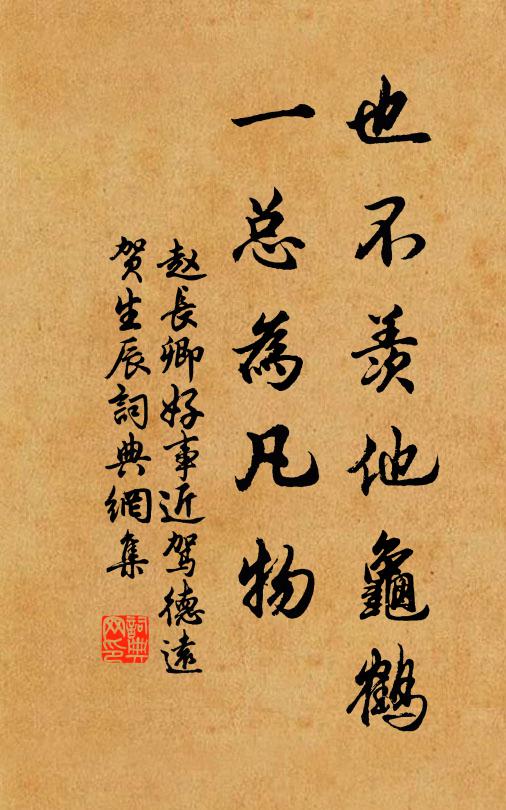 也不羡他龜鶴
一总為凡物
赵長卿好事近駕德遠
贺生辰詞典網集
詞典
网印